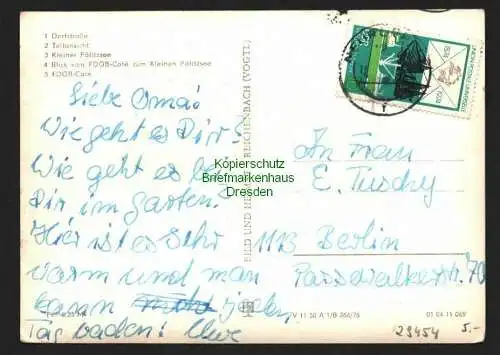 1 Dorfstraße
2 Teilansicht
3 Kleiner Pälitzsee
4 Blick vom FDGB-Café zum Kleinen Pälitzsee
5 FDGB-Café
Liebe Oma!
Wie geht es Dir?
Wie geht es
Dir im Garten?
Hier ist es sehr
warm und man
kann jeden
Tag baden! Uwe
BILD UND HEIMAT REICHENBACH (VOGTL)
An Frau
E. Tuschy
1113 Berlin
Pasewalkerstr. 70
V 11 50 A 1/B 366/76
01 04 15 069
29454 5.-
Kopierschutz
Briefmarkenhaus
Dresden